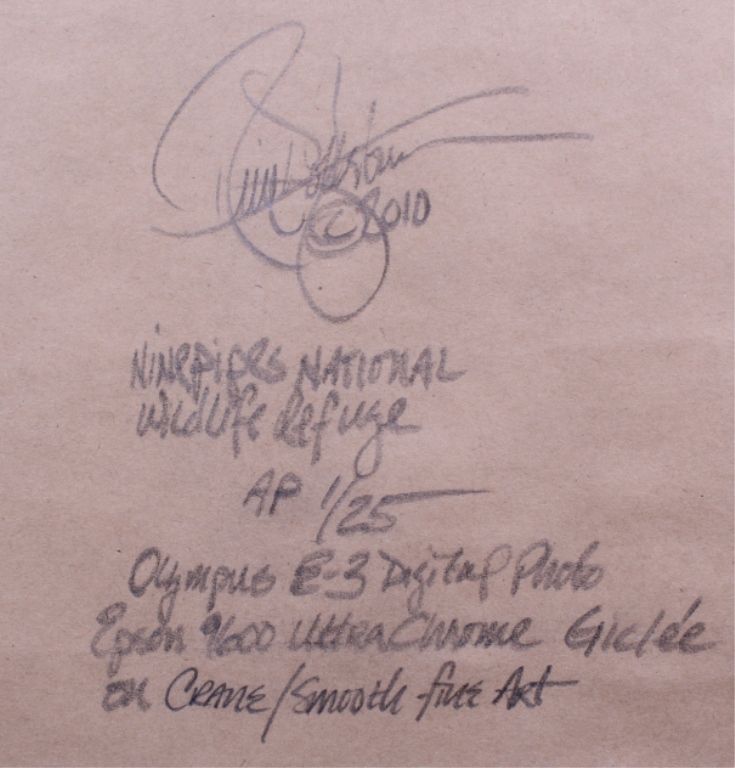 © 2010
Ninepipes NATIONAL
Wildlife Refuge
AP 1/25
Olympus E-3 Digital Photo
Epson 9600 UltraChrome Giclée
on CRANE/Smooth fine Art